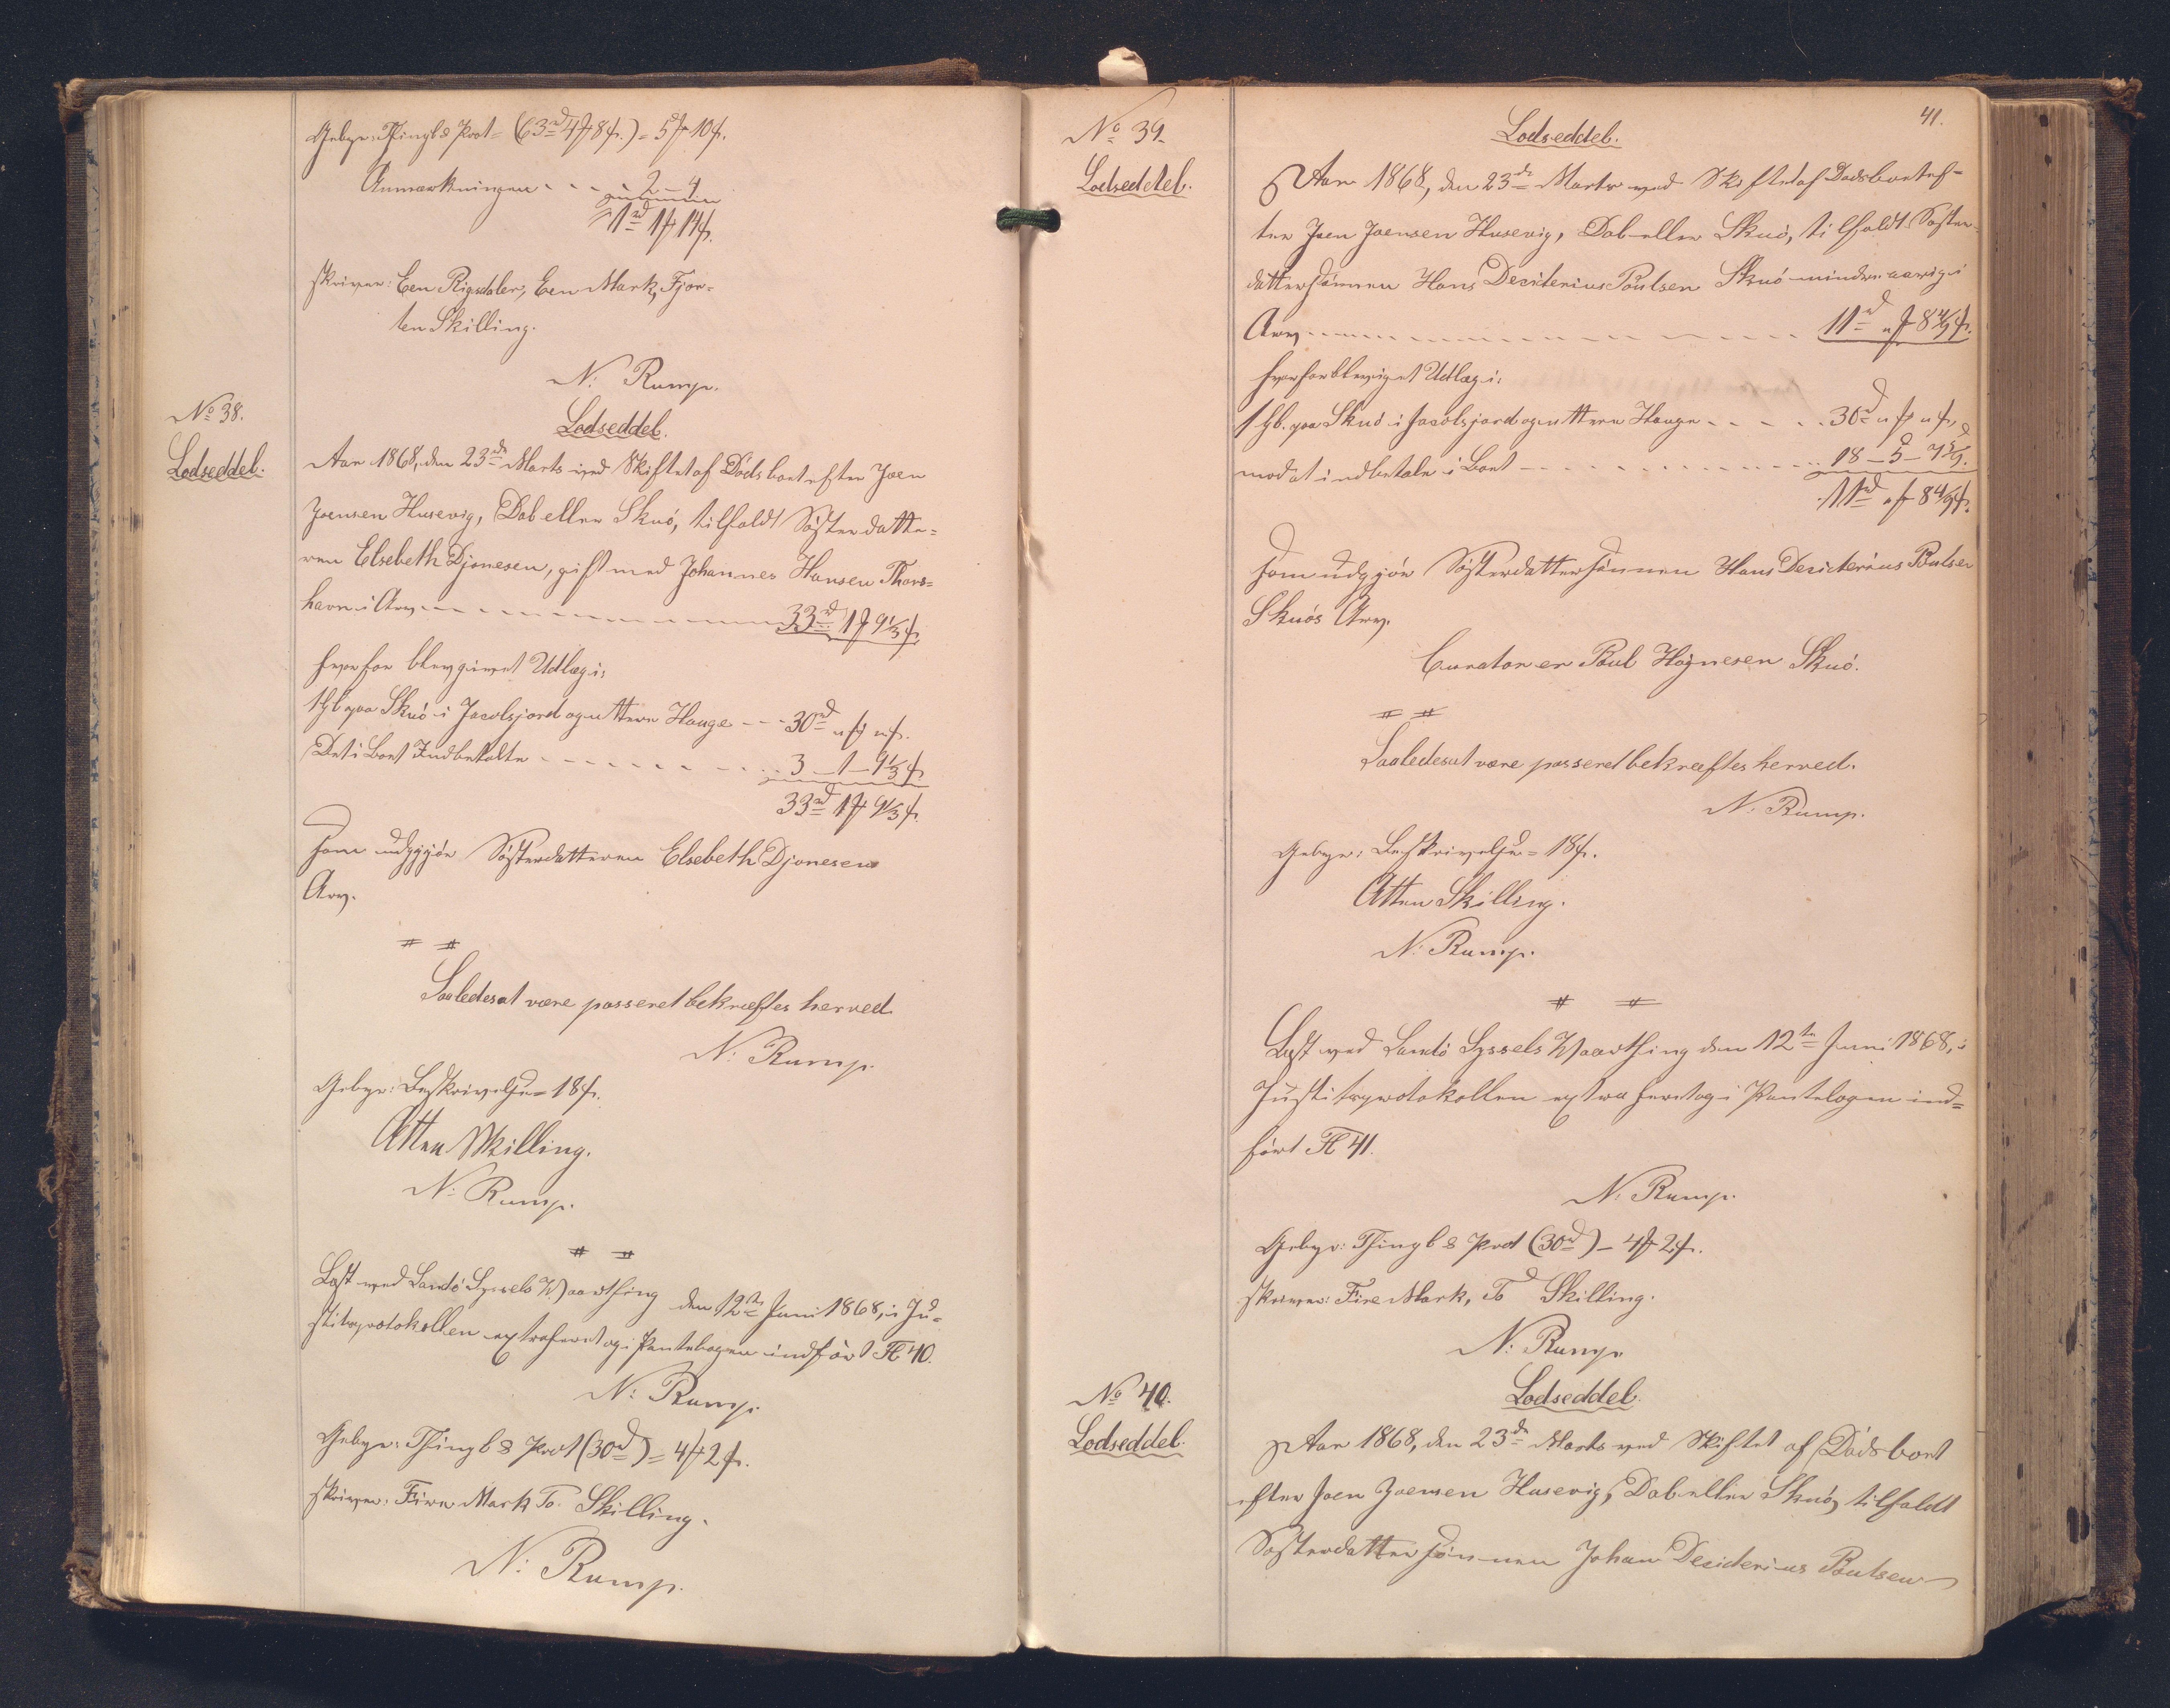 Gebyr: Thingl & Prot = (63rd 4 ₰ 8 ß.) = 5 ₰ 10 ß.
Anmærkningen - - - - 2 - 4
1rd 1 ₰ 14 ß.
skriver: Een Rigsdaler, Een Mark, Fjor=
ten Skilling.
N: Rump.
No 38.
Lodseddel.
Lodseddel.
Aar 1868, den 23de Marts ved Skiftet af Dødsboet efter Joen
Joensen Husevig, Dal eller Skuö, tilfaldt Søsterdatte=
ren Elsebeth Djonesen, gift med Johannes Hansen Thors=
havn i Arv - - - - 33rd 1 ₰ 9⅓ ß.
hvorfor blev givet Udlæg i:
1 Gl. paa Skuö i Jacolsjord og uttere Hauge - - - 30rd " ₰ " ß.
Det i Boet Indbetalte - - - - 3 - 1 - 9⅓ ß.
33rd 1 ₰ 9⅓ ß.
som udgjör Søsterdatteren Elsebeth Djonesens
Arv.
# #
Saaledes at være passeret bekræftes herved.
N: Rump.
Gebyr: Beskrivelse = 18 ß.
Atten Skilling.
N: Rump.
# #
Læst ved Sandö Syssels Vaarthing den 12te Juni 1868, i Ju=
stitsprotokollen extraheret og i Pantebogen indfört Fl 40.
N: Rump.
Gebyr: Thingl & Prot (30rd) = 4 ₰ 2 ß.
skriver: Fire Mark To Skilling.
N: Rump.
41.
No 39.
Lodseddel.
Lodseddel.
Aar 1868, den 23de Marts ved Skiftet af Dødsboet ef=
ter Joen Joensen Husevig, Dal eller Skuö, tilfaldt Søster=
dattersönnen Hans Desiderius Poulsen Skuö mindreaarig i
Arv - - - - 11rd " ₰ 8 4/9 ß.
hvorfor blev givet Udlæg i:
1 Gl. paa Skuö i Jacolsjord og uttere Hauge - - - - 30rd " ₰ " ß.
mod at indbetale i Boet - - - - 18 - 5 - 7 5/9.
11rd " ₰ 8 4/9 ß.
som udgjör Søsterdattersönnen Hans Desiderius Poulsen
Skuös Arv.
Curator er Poul Højnesen Skuö.
# #
Saaledes at være passeret bekræftes herved.
N: Rump.
Gebyr: Beskrivelse = 18 ß.
Atten Skilling.
N: Rump.
# #
Læst ved Sandö Syssels Vaarthing den 12te Juni 1868, i
Justitsprotokollen extraheret og i Pantebogen ind=
fört Fl 41.
N: Rump.
Gebyr: Thingl & Prot (30rd) - 4 ₰ 2 ß.
skriver: Fire Mark, To Skilling.
N: Rump
No 40.
Lodseddel.
Lodseddel.
Aar 1868, den 23de Marts ved Skiftet af Dødsboet
efter Joen Joensen Husevig, Dal eller Skuö, tilfaldt
Søsterdattersönnen Johan Desiderius Poulsen